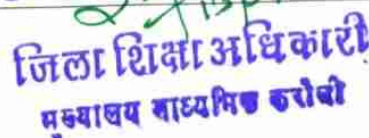 जिला शिक्षा अधिकारी
मुख्यालय माध्यमिक करौली